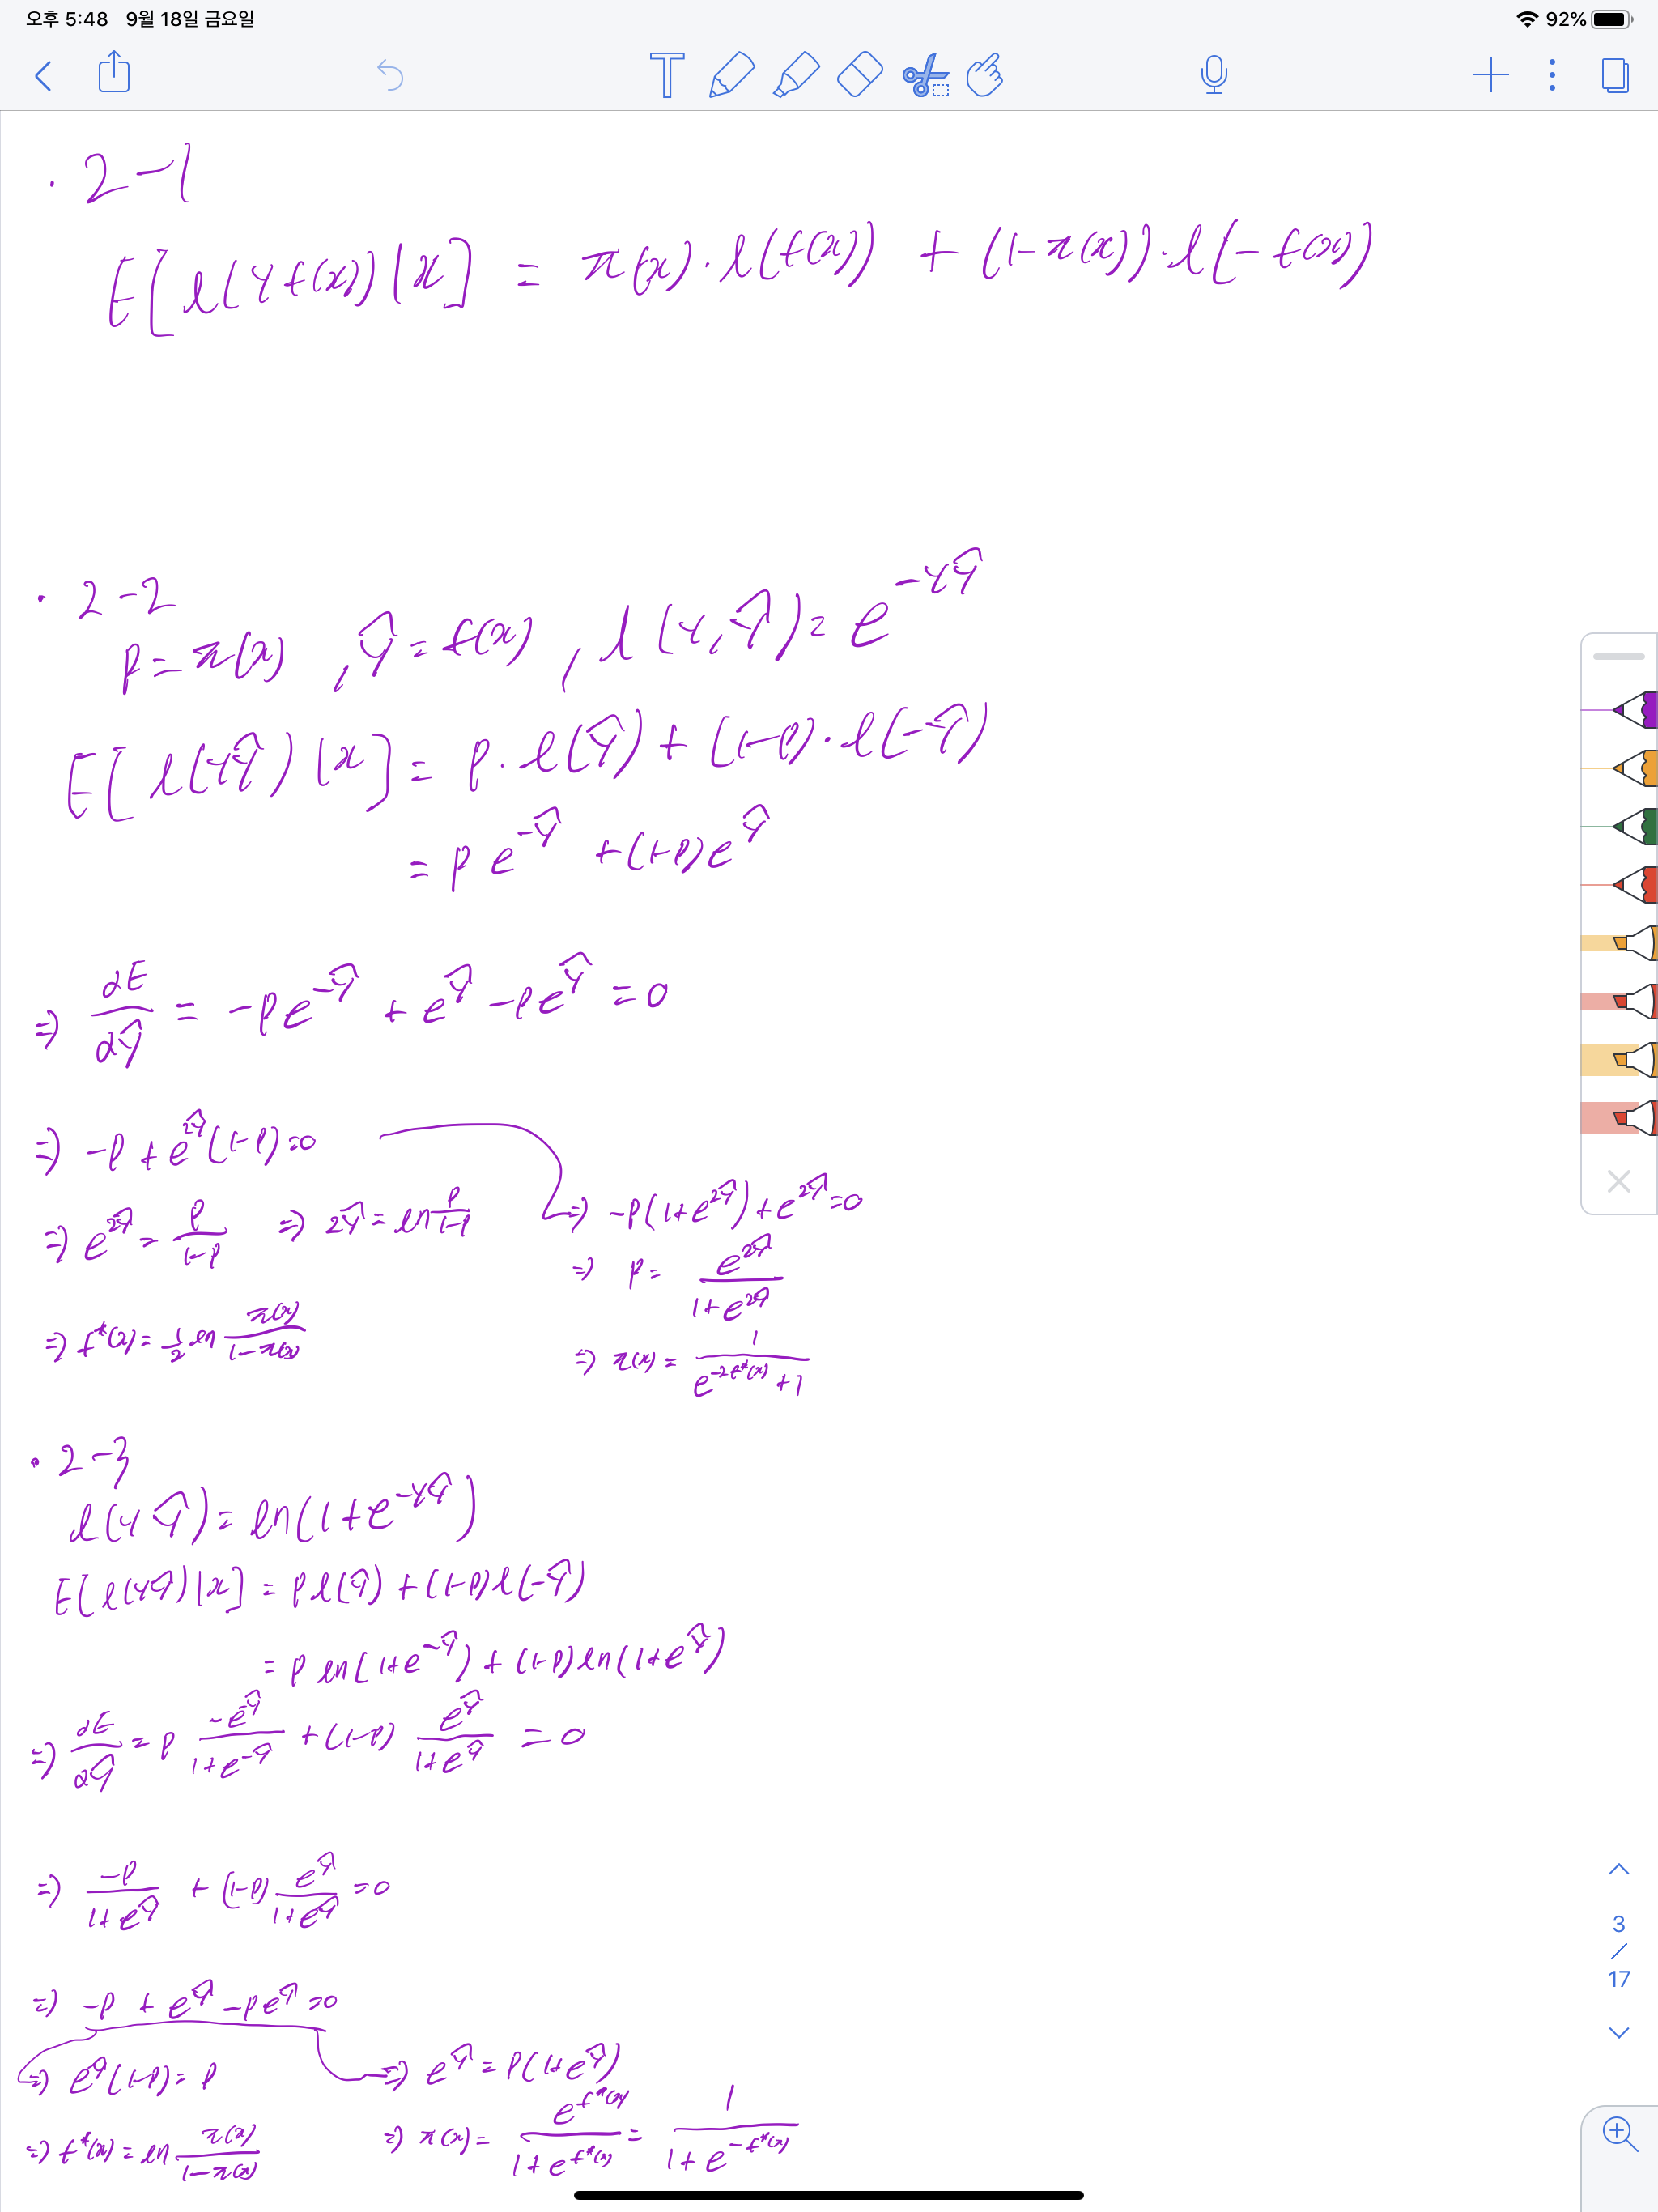 오후 5:48 9월 18일 금요일 92%
· 2-1
E[l(yf(x))|x] = π(x)·l(f(x)) + (1-π(x))·l(-f(x))
· 2-2
p = π(x) , ŷ = f(x) , l(y,ŷ) = e^{-yŷ}
E[l(yŷ)|x] = p·l(ŷ) + (1-p)·l(-ŷ)
= p e^{-ŷ} + (1-p)e^{ŷ}
⇒ ∂E/∂ŷ = -pe^{-ŷ} + e^{ŷ} - pe^{ŷ} = 0
⇒ -p + e^{2ŷ}(1-p) = 0
⇒ e^{2ŷ} = p/(1-p) ⇒ 2ŷ = ln p/(1-p)
⇒ f*(x) = 1/2 ln π(x)/(1-π(x))
⇒ -p(1+e^{2ŷ}) + e^{2ŷ} = 0
⇒ p = e^{2ŷ}/(1+e^{2ŷ})
⇒ π(x) = 1/(e^{-2f*(x)} + 1)
· 2-3
l(yŷ) = ln(1+e^{-yŷ})
E[l(yŷ)|x] = pl(ŷ) + (1-p)l(-ŷ)
= p ln(1+e^{-ŷ}) + (1-p)ln(1+e^{ŷ})
⇒ ∂E/∂ŷ = p (-e^{-ŷ})/(1+e^{-ŷ}) + (1-p) e^{ŷ}/(1+e^{ŷ}) = 0
⇒ -p/(1+e^{ŷ}) + (1-p) e^{ŷ}/(1+e^{ŷ}) = 0
⇒ -p + e^{ŷ} - pe^{ŷ} = 0
⇒ e^{ŷ}(1-p) = p
⇒ f*(x) = ln π(x)/(1-π(x))
⇒ e^{ŷ} = p(1+e^{ŷ})
⇒ π(x) = e^{f*(x)}/(1+e^{f*(x)}) = 1/(1+e^{-f*(x)})
3
/
17